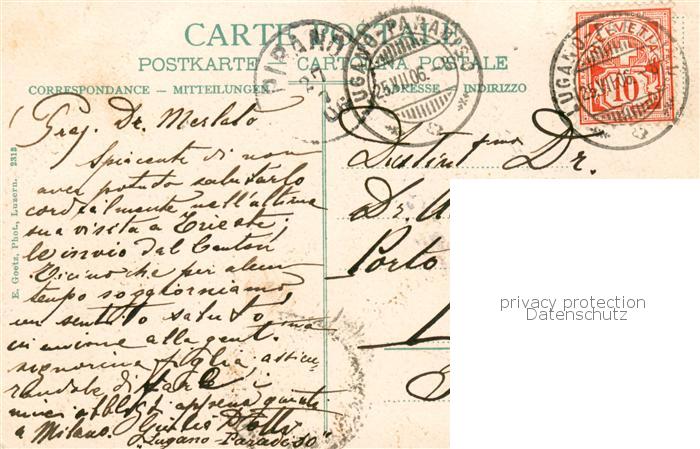 CARTE POSTALE
POSTKARTE CARTOLINA POSTALE
CORRESPONDANCE – MITTEILUNGEN ADRESSE INDIRIZZO
PIRANO
27
LUGANO-PARADISO
25.VII.06.
LUGANO-PARADISO
25.VII.06.
HELVETIA
10
E. Goetz, Phot., Luzern. 2313
Preg. Dr. Merlato
Spiacente di non
aver potuto salutarlo
cordialmente nell'ultima
sua visita a Trieste,
le invio dal Canton
Ticino che per alcun
tempo soggiorniamo,
un sentito saluto
in unione alla gent.
signorina figlia, assicu-
randole di fare i
miei appena giunto
a Milano. Giulio
"Lugano-Paradiso"
Dr.
Dr.
Porto
privacy protection
Datenschutz